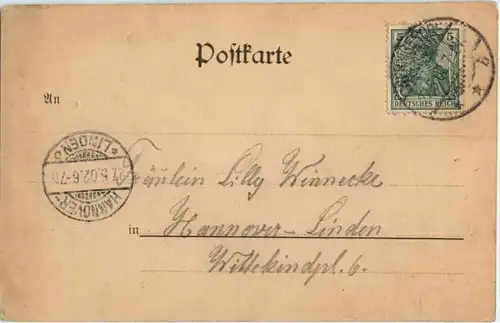 Postkarte
5 5
DEUTSCHES REICH
An
HANNOVER-
*LINDEN*
7.5.02.6-7N
Fräulein Lilly Winnecke
in Hannover-Linden
Wittekindpl. 6.